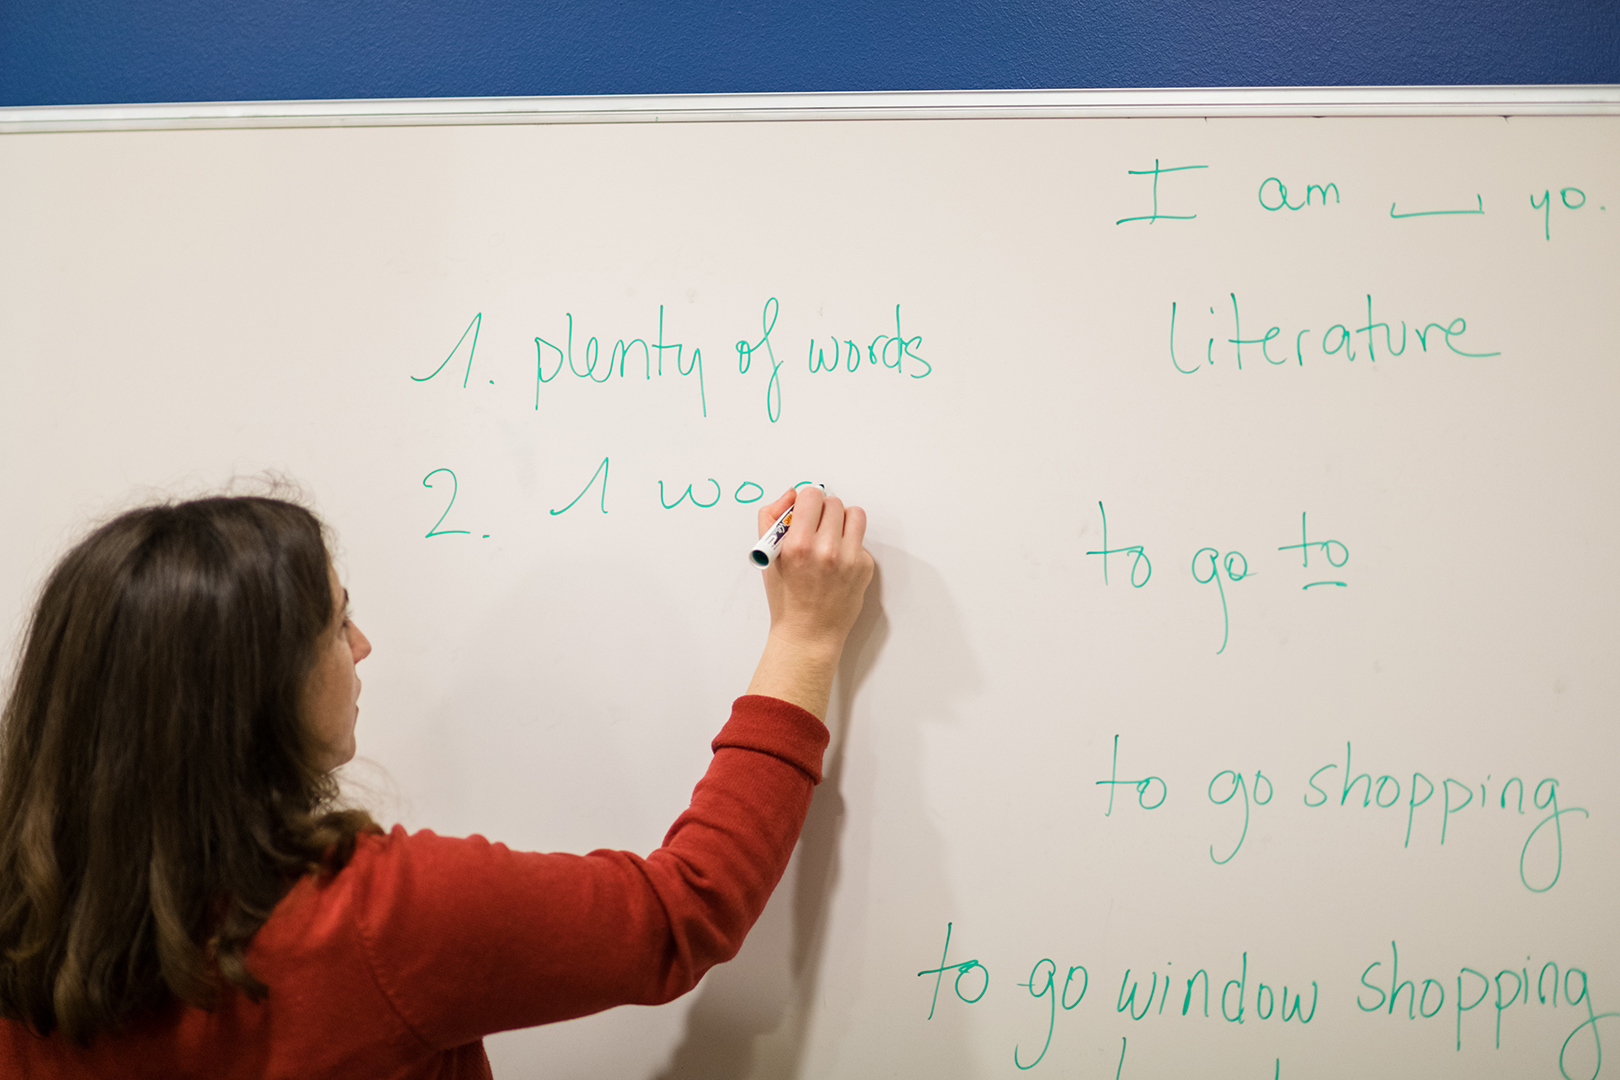 I am __ yo.
Literature
1. plenty of words
2. 1
to go to
to go shopping
to go window shopping